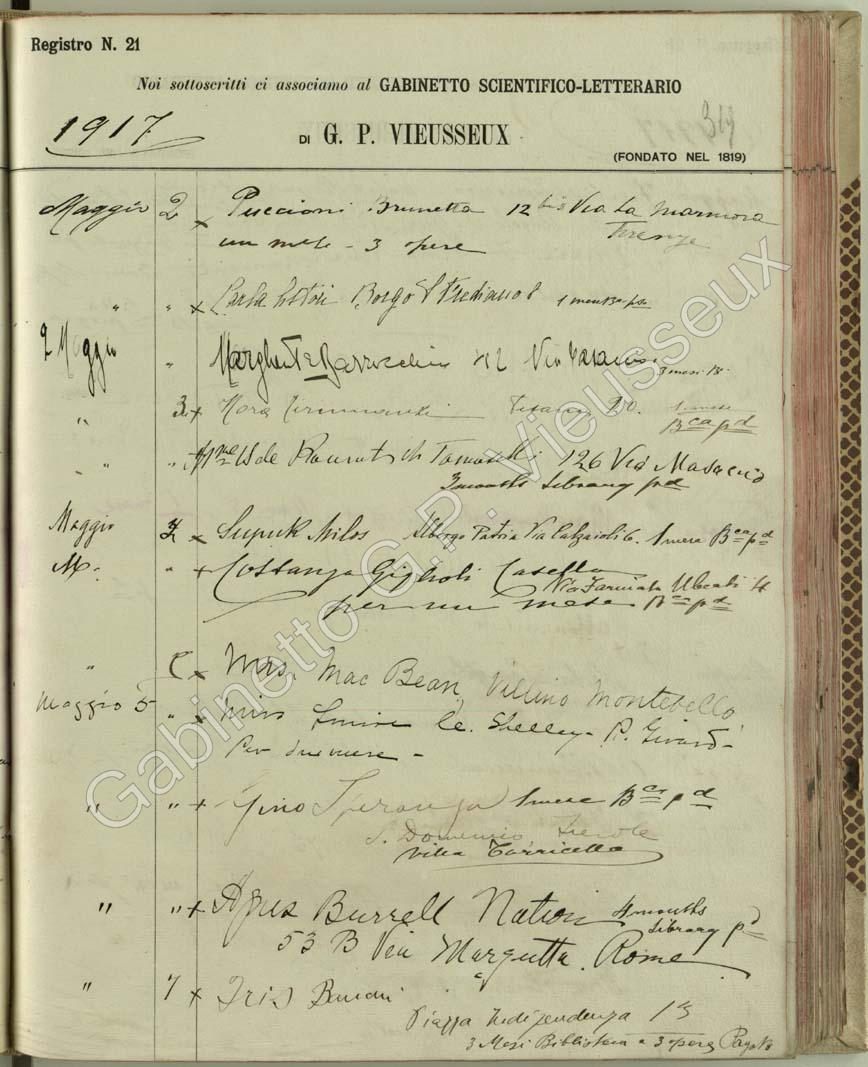 Registro N. 21
Noi sottoscritti ci associamo al GABINETTO SCIENTIFICO-LETTERARIO
1917 DI G. P. VIEUSSEUX 319
(FONDATO NEL 1819)
Maggio 2 x Puccioni Brunetta 12 bis Via La Marmora
un mese - 3 opere Firenze
" " x Carla Borgo S Frediano 8
2 Maggio " Margherita Via 3 mesi
" 3 x Nora 20. 1 mese
Bca pd
" " Mme de 126 Via Masaccio
3 months Library pd
Maggio 4 x Supuk Milos Albergo Patria Via Calzaioli 6. 1 mese Bca pd
M. " x Costanza Giglioli Casella
Via Farinata Uberti
per un mese Bca pd
" x Mrs. Mac Bean, Villino Montebello
Maggio 5 " x Miss Shelley -
Per due mese -
" " x Gino Speranza 1 mese Bca pd
S. Domenico Fiesole
Villa Torricella
" " x Agnes Burrell Nation 4 months
Library pd
53 B Via Margutta. Rome
" 7 x Iris
Piazza Indipendenza 13
3 Mesi Biblioteca a 3 opere Pagato
Gabinetto G.P. Vieusseux